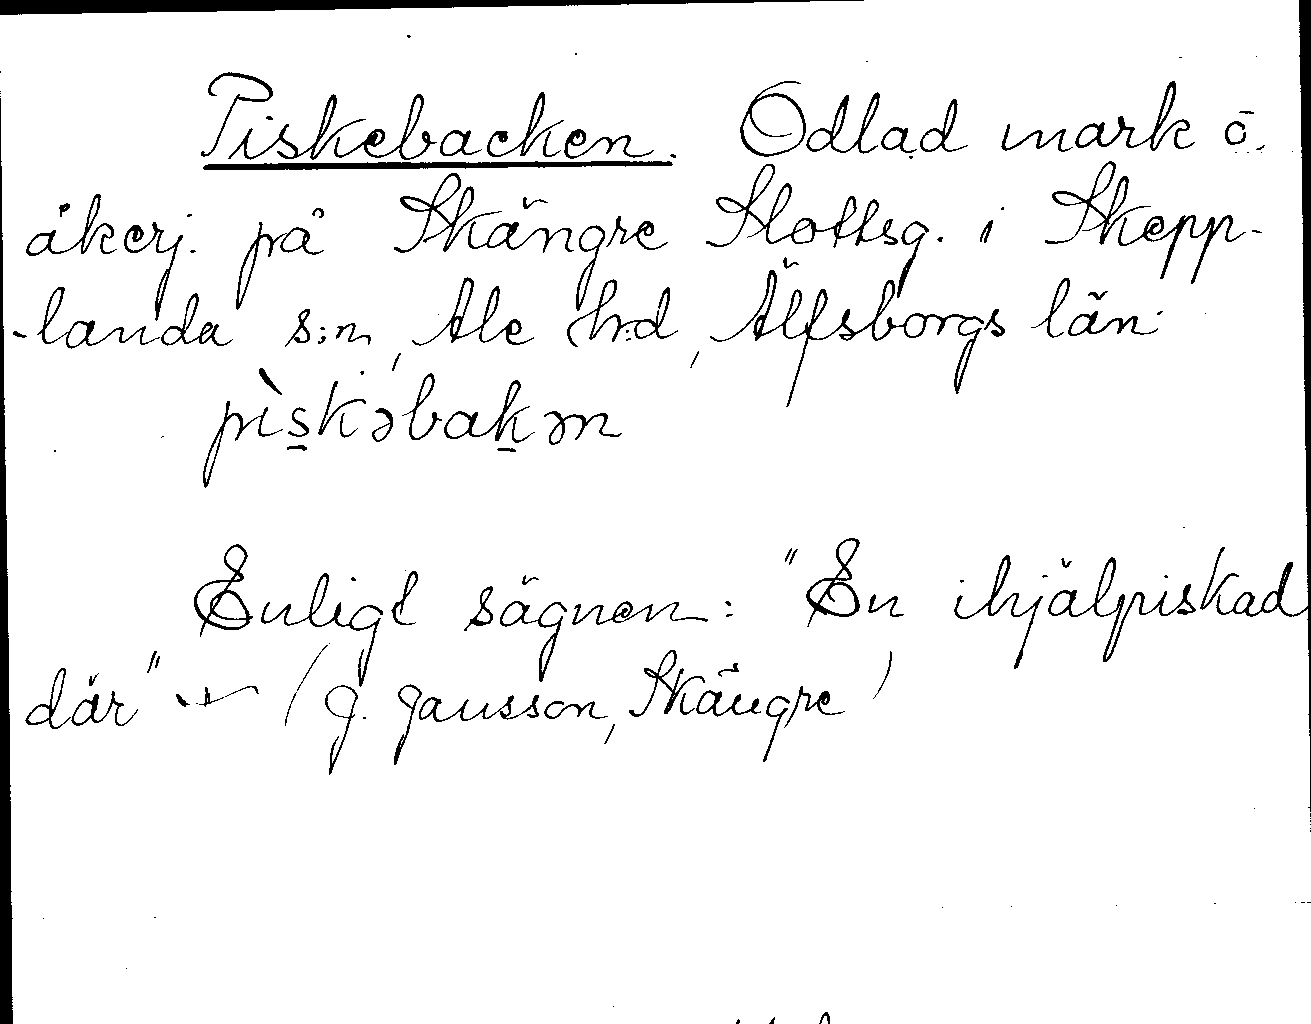 Piskebacken. Odlad mark o.
åkerj. på Skängre Slottsg. i Skepp-
-landa s:n, Ale h:d, Älfsborgs län
pìskəbakən
Enligt sägnen: "En ihjälpiskad
där" (J. Jansson, Skängre)